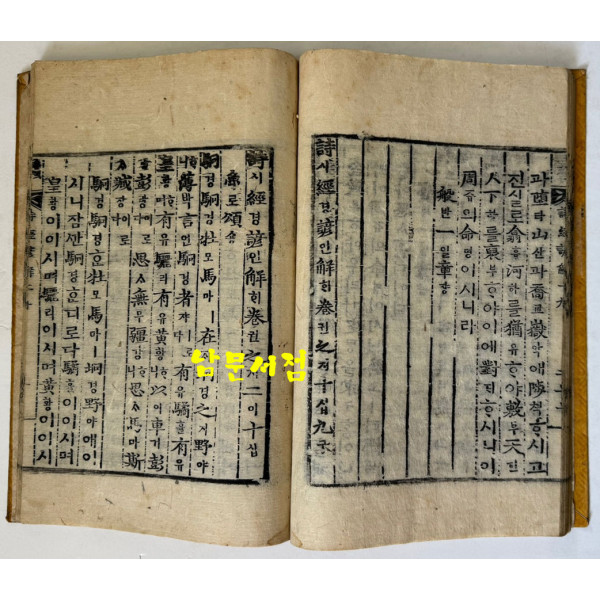 과 嶞타山산과 喬교嶽악애 陟척ᄒᆞ시고
진실로 翕흡河하ᄅᆞᆯ 猶유ᄒᆞ야 敷부天텬
ㅅ下하ᄅᆞᆯ 裒부ᄒᆞ야 이에 對ᄃᆡᄒᆞ시니 이
周쥬의 命명이시니라
般반 一일章쟝
詩시經경諺언解ᄒᆡ卷권之지十십九구
詩시經경諺언解ᄒᆡ卷권之지二이十십
魯로頌숑
駉경駉경牡모馬마ㅣ 在ᄌᆡ坰경之지野야
ᄒᆞ니 薄박言언駉경者쟈ㅣ로다 有유驈휼有유
皇황ᄒᆞ며 有유驪리有유黃황ᄒᆞ니 以이車거彭방
彭방이로다 思ᄉᆞ無무疆강ᄒᆞ니 思ᄉᆞ馬마斯ᄉᆞ
臧장이로다
駉경駉경ᄒᆞᆫ 牡모馬마ㅣ 坰경野야애 이
시니 잠깐 駉경ᄒᆞᆫ 디로다 驈휼이이시며
皇황이이시며 驪리이시며 黃황이이시
남문서점